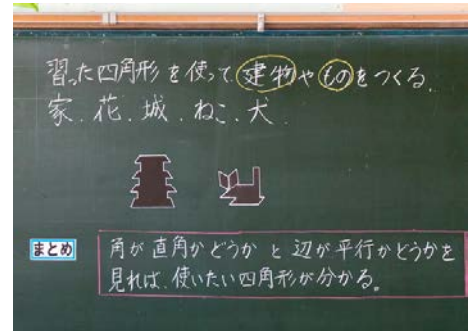 習った四角形を使って建物やものをつくる。
家.花.城.ねこ.犬.
まとめ
角が直角かどうかと辺が平行かどうかを
見れば、使いたい四角形が分かる。